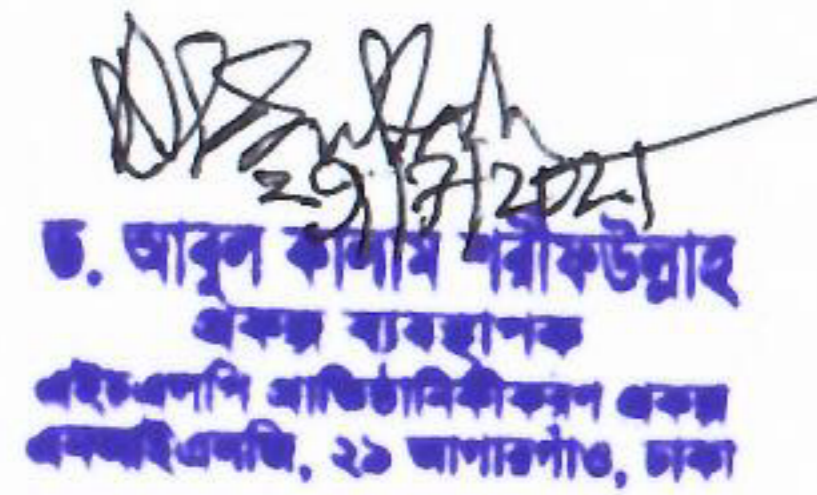 29/7/2021
ড. আবুল কালাম শরীফউল্লাহ
প্রকল্প ব্যবস্থাপক
এইচএলপি প্রাতিষ্ঠানিকীকরণ প্রকল্প
এনআইএলজি, ২৯ আগারগাঁও, ঢাকা